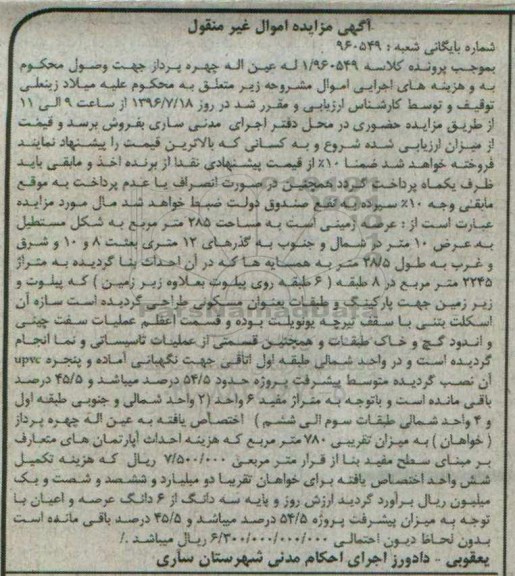 آگهی مزایده اموال غیر منقول
شماره بایگانی شعبه : ۹۶۰۵۴۹
بموجب پرونده کلاسه ۱/۹۶۰۵۴۹ له عین اله چهره پرداز جهت وصول محکوم
به و هزینه های اجرایی اموال مشروحه زیر متعلق به محکوم علیه میلاد زینعلی
توقیف و توسط کارشناس ارزیابی و مقرر شد در روز ۱۳۹۶/۷/۱۸ از ساعت ۹ الی ۱۱
از طریق مزایده حضوری در محل دفتر اجرای مدنی ساری بفروش برسد و قیمت
از میزان ارزیابی شده شروع و به کسانی که بالاترین قیمت را پیشنهاد نمایند
فروخته خواهد شد ضمنا ۱۰٪ از قیمت پیشنهادی نقدا از برنده اخذ و مابقی باید
ظرف یکماه پرداخت گردد همچنین در صورت انصراف یا عدم پرداخت به موقع
مابقی وجه ۱۰٪ سپرده به نفع صندوق دولت ضبط خواهد شد مال مورد مزایده
عبارت است از : عرصه زمینی است به مساحت ۲۸۵ متر مربع به شکل مستطیل
به عرض ۱۰ متر در شمال و جنوب به گذرهای ۱۲ متری بعثت ۸ و ۱۰ و شرق
و غرب به طول ۲۸/۵ متر به همسایه ها که در آن احداث بنا گردیده به متراژ
۲۲۴۵ متر مربع در ۸ طبقه ( ۶ طبقه روی پیلوت بعلاوه زیر زمین ) که پیلوت و
زیر زمین جهت پارکینگ و طبقات بعنوان مسکونی طراحی گردیده است سازه آن
اسکلت بتنی با سقف تیرچه یونولیت بوده و قسمت اعظم عملیات سفت چینی
و اندود گچ و خاک طبقات و همچنین قسمتی از عملیات تاسیساتی و نما انجام
گردیده است و در واحد شمالی طبقه اول اتاقی جهت نگهبانی آماده و پنجره upvc
آن نصب گردیده متوسط پیشرفت پروژه حدود ۵۴/۵ درصد میباشد و ۴۵/۵ درصد
باقی مانده است و باتوجه به متراژ مفید ۶ واحد (۲ واحد شمالی و جنوبی طبقه اول
و ۴ واحد شمالی طبقات سوم الی ششم ) اختصاص یافته به عین اله چهره پرداز
( خواهان ) به میزان تقریبی ۷۸۰ متر مربع که هزینه احداث آپارتمان های متعارف
بر مبنای سطح مفید بنا از قرار متر مربعی ۷/۵۰۰/۰۰۰ ریال که هزینه تکمیل
شش واحد اختصاص یافته برای خواهان تقریبا دو میلیارد و ششصد و شصت و یک
میلیون ریال برآورد گردید ارزش روز و پایه سه دانگ از ۶ دانگ عرصه و اعیان با
توجه به میزان پیشرفت پروژه ۵۴/۵ درصد میباشد و ۴۵/۵ درصد باقی مانده است
بدون لحاظ دیون احتمالی ۶/۳۰۰/۰۰۰/۰۰۰ ریال میباشد ./
یعقوبی - دادورز اجرای احکام مدنی شهرستان ساری